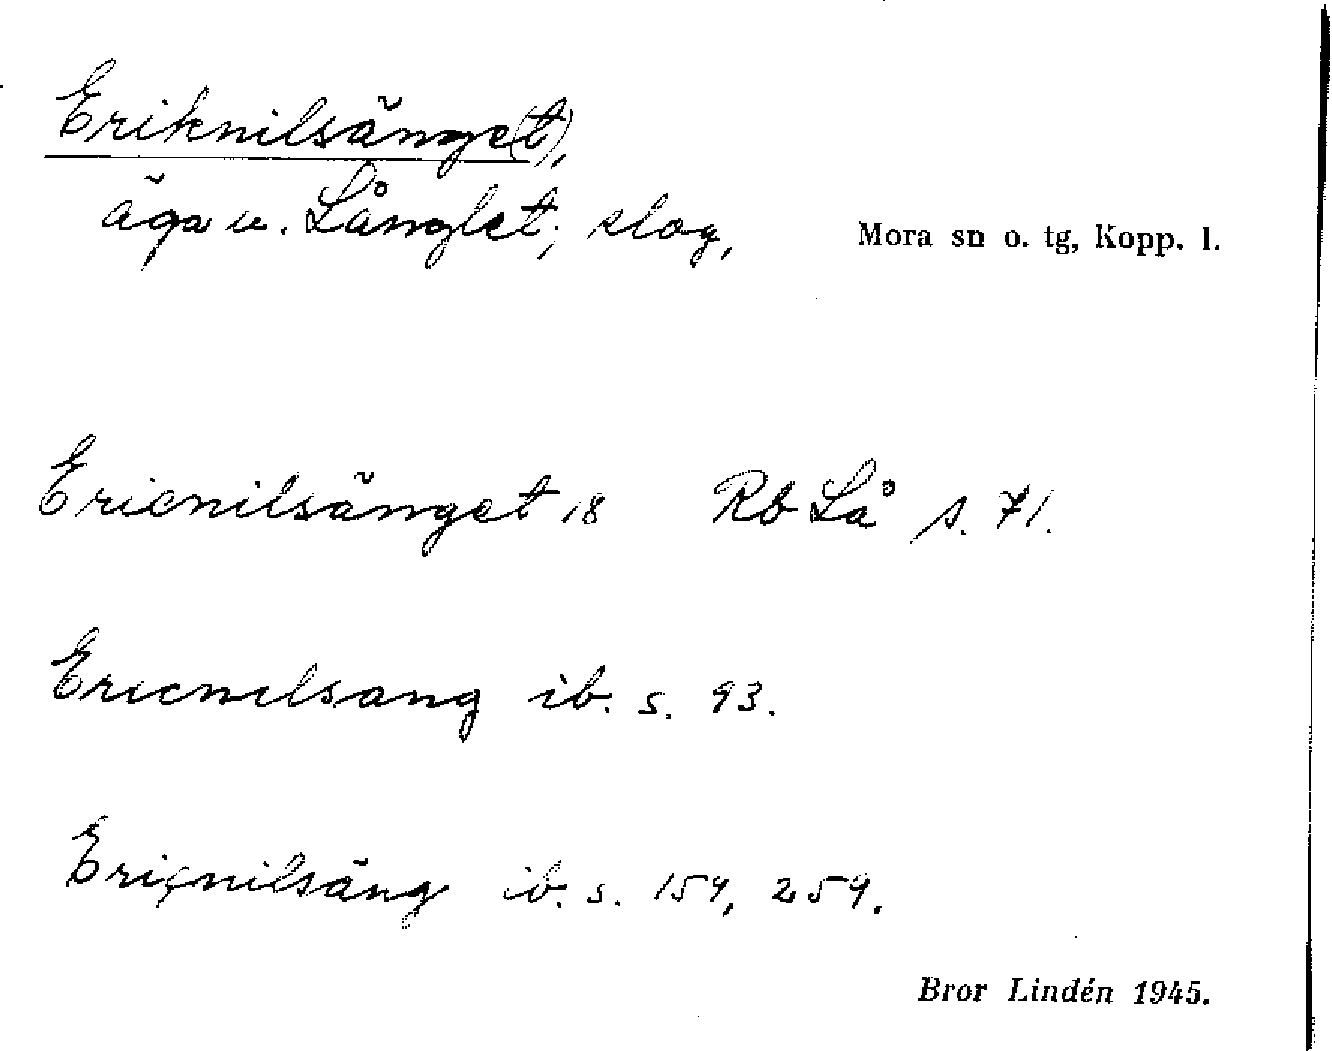 Eriknilsänge(t),
äga u. Långlet; slog,
Mora sn o. tg, Kopp. l.
Ericnilsänget 18 Rb Lå s. 71.
Ericnilsang ib. s. 93.
Ericnilsäng ib. s. 159, 259.
Bror Lindén 1945.